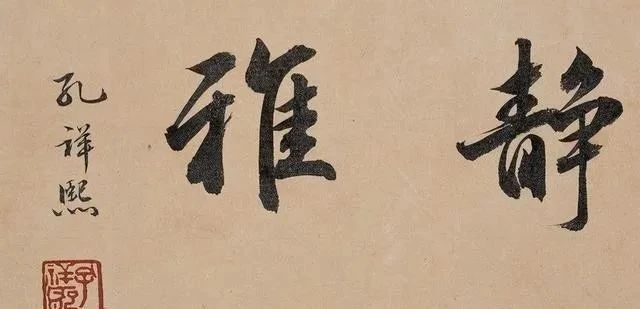 靜雅
孔祥熙